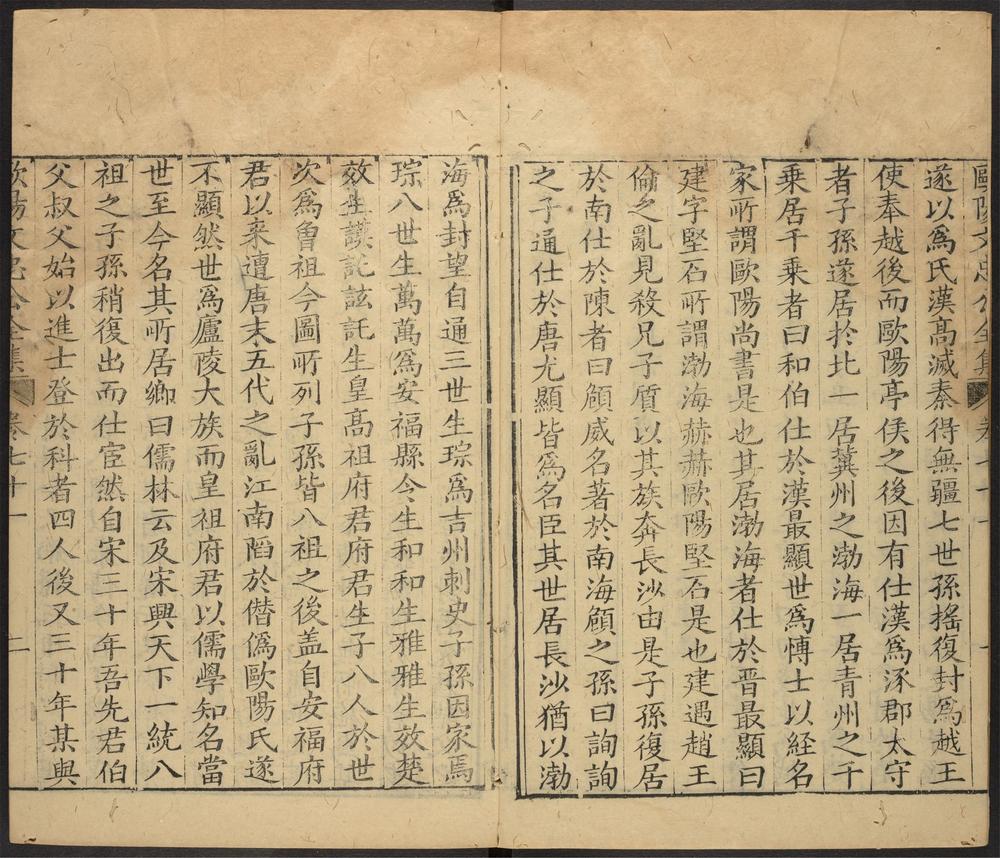 歐陽文忠公全集 卷七十一
遂以爲氏漢高滅秦得無疆七世孫搖復封爲越王
使奉越後而歐陽亭侯之後因有仕漢爲涿郡太守
者子孫遂居於北一居冀州之渤海一居青州之千
乘居千乘者曰和伯仕於漢最顯世爲博士以経名
家所謂歐陽尚書是也其居渤海者仕於晋最顯曰
建字堅石所謂渤海赫赫歐陽堅石是也建遇趙王
倫之亂見殺兄子質以其族奔長沙由是子孫復居
於南仕於陳者曰頠威名著於南海頠之孫曰詢詢
之子通仕於唐尤顯皆爲名臣其世居長沙猶以渤
海爲封望自通三世生琮爲吉州刺史子孫因家焉
琮八世生萬萬爲安福縣令生和和生雅雅生效楚
效生謨託詃託生皇高祖府君府君生子八人於世
次爲曾祖今圖所列子孫皆八祖之後盖自安福府
君以来遭唐末五代之亂江南䧟於僣僞歐陽氏遂
不顯然世爲廬陵大族而皇祖府君以儒學知名當
世至今名其所居鄉曰儒林云及宋興天下一統八
祖之子孫稍復出而仕宦然自宋三十年吾先君伯
父叔父始以進士登於科者四人後又三十年某與
歐陽文忠公全集 卷七十一 二